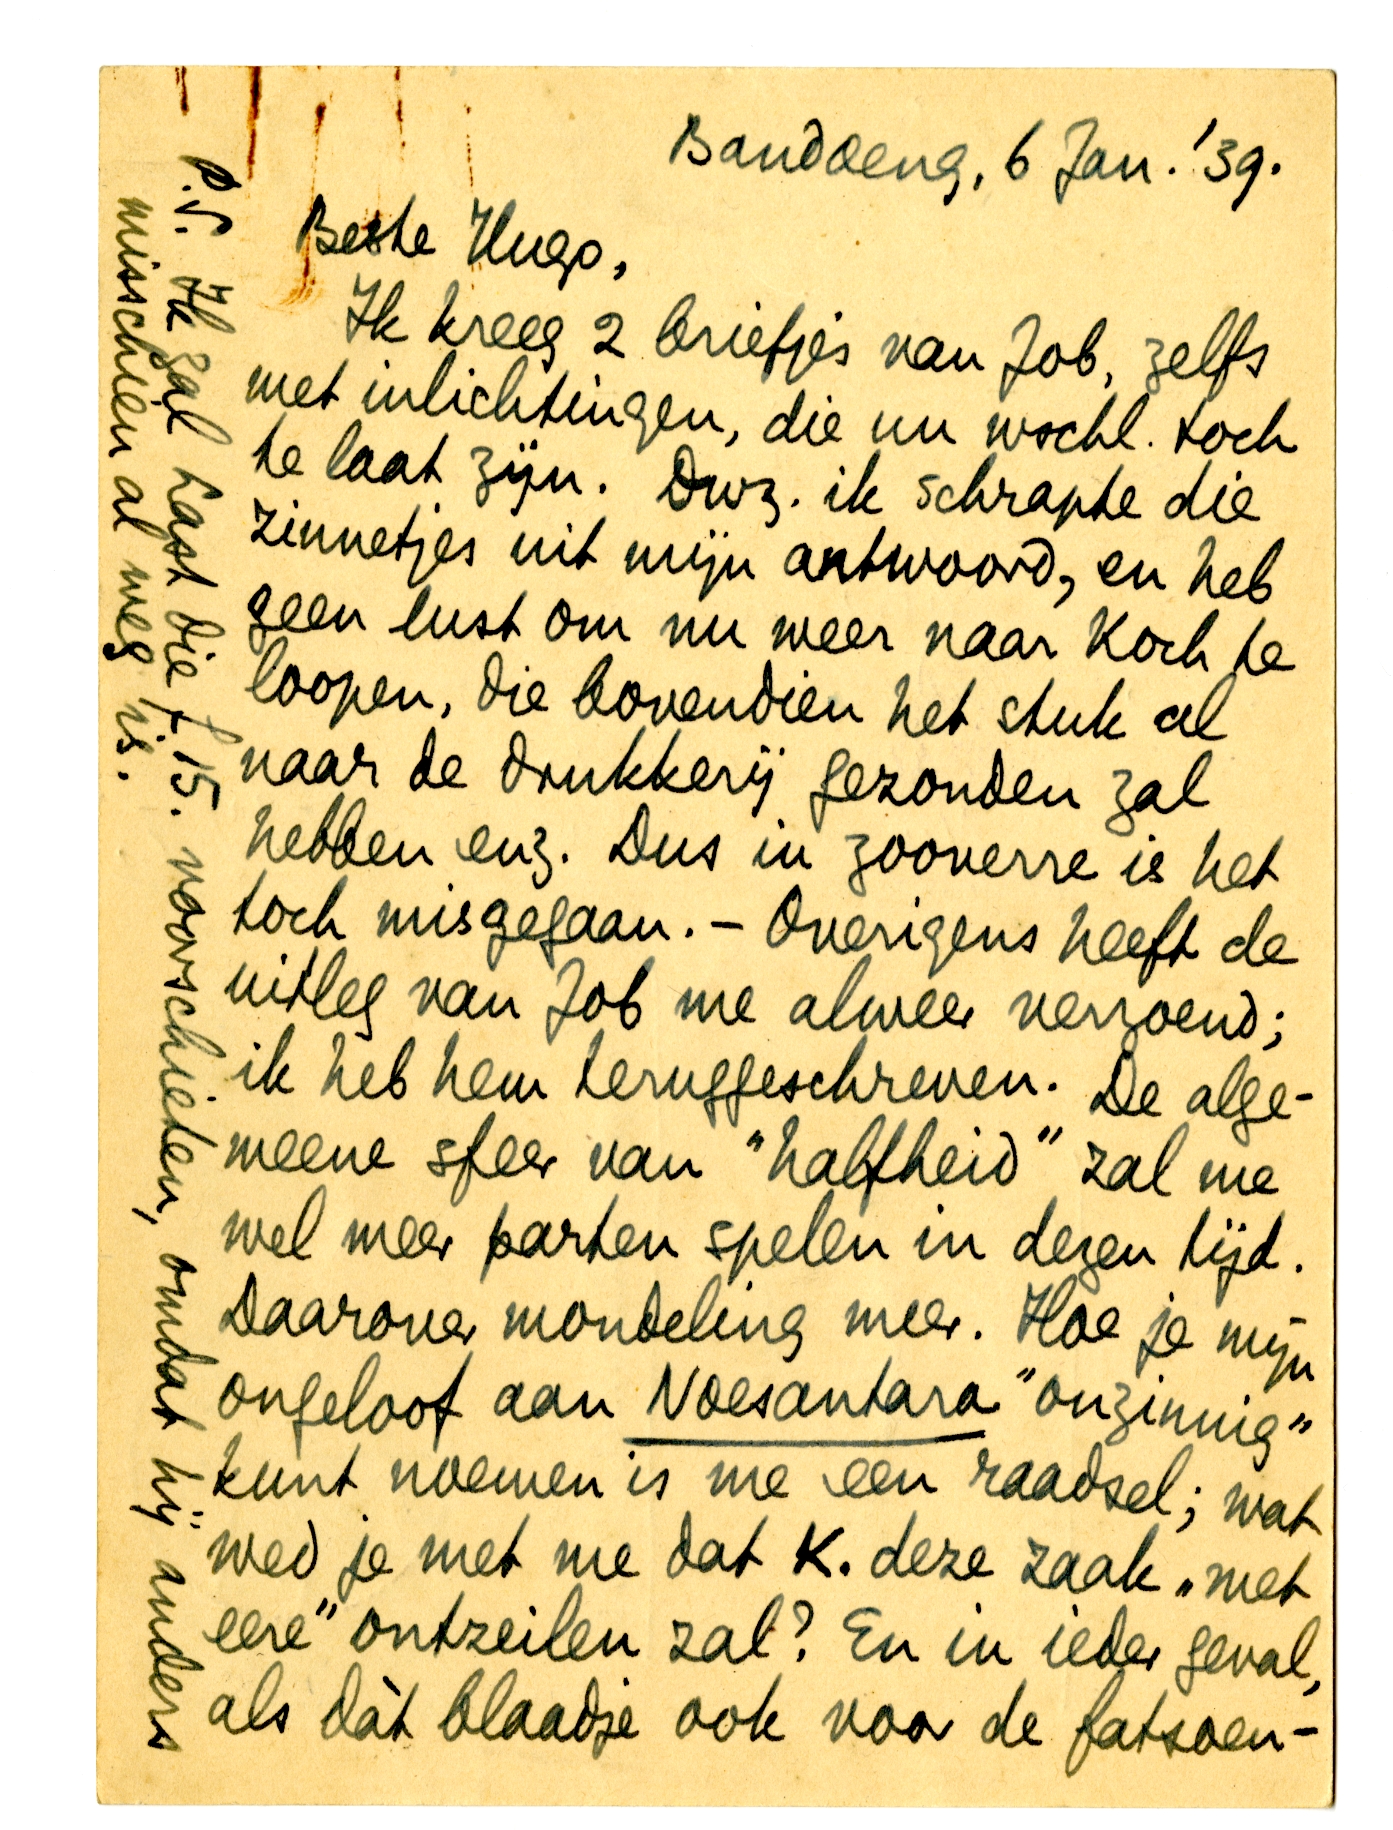 Bandoeng, 6 Jan. '39.
Beste Hugo,
Ik kreeg 2 briefjes van Job, zelfs
met inlichtingen, die nu wschl. toch
te laat zijn. Dwz. ik schrapte die
zinnetjes uit mijn antwoord, en heb
geen lust om nu weer naar Koch te
loopen, die bovendien het stuk al
naar de drukkerij gezonden zal
hebben enz. Dus in zooverre is het
toch misgegaan. – Overigens heeft de
uitleg van Job me alweer verzoend;
ik heb hem teruggeschreven. De alge-
meene sfeer van "halfheid" zal me
wel meer parten spelen in dezen tijd.
Daarover mondeling meer. Hoe je mijn
ongeloof aan Noesantara "onzinnig"
kunt noemen is me een raadsel; wat
wed je met me dat K. deze zaak „met
eere" ontzeilen zal? En in ieder geval,
als dàt blaadje ook voor de fatsoen-
P.S. Ik zal Last die f 15. voorschieten, omdat hij anders
misschien al weg is.